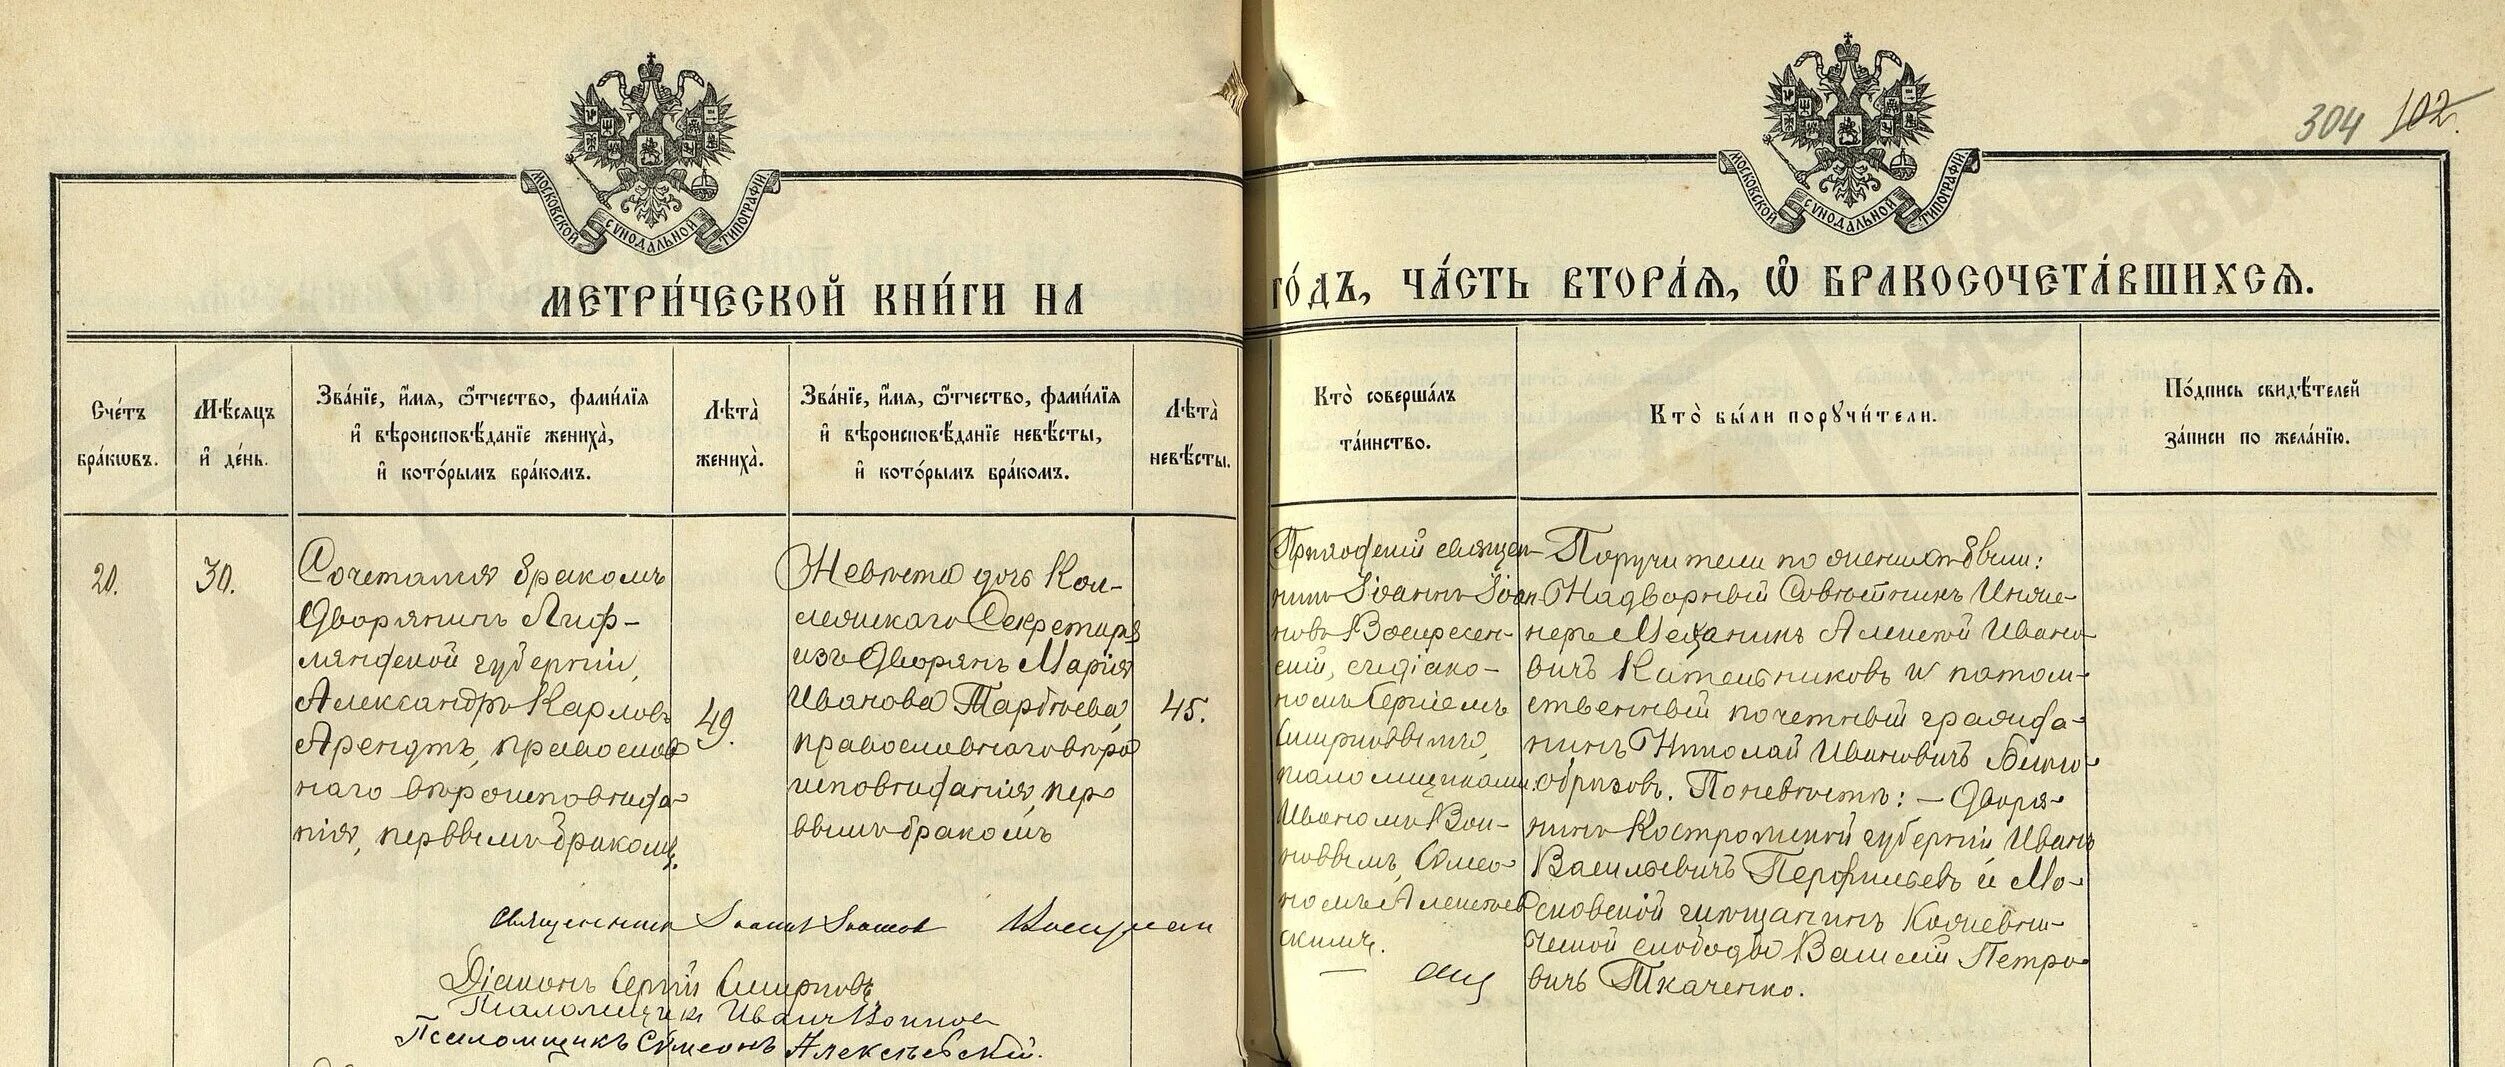 304 102.
МОСКОВСКОЙ СѴНОДАЛЬНОЙ ТИПОГРАФІИ
МОСКОВСКОЙ СѴНОДАЛЬНОЙ ТИПОГРАФІИ
МЕТРИ́ЧЕСКОЙ КНИ́ГИ НА
ГО́ДЪ, ЧА́СТЬ ВТОРА́Я, Ѿ БРАКОСОЧЕТА́ВШИХСЯ.
Сче́тъ
бра́кωвъ.
Мѣ́сяцъ
и҆ де́нь.
Зва́нїе, и҆́мя, ѻ҆́тчество, фами́лїя
и҆ вѣроисповѣ́данїе жениха̀,
и҆ кото́рымъ бра́комъ.
Лѣ́та̀
жениха̀.
Зва́нїе, и҆́мя, ѻ҆́тчество, фами́лїя
и҆ вѣроисповѣ́данїе невѣ́сты,
и҆ кото́рымъ бра́комъ.
Лѣ́та̀
невѣ́сты.
Кто̀ соверша́лъ
та́инство.
Кто̀ бы́ли порꙋчи́тели.
По́дпись свидѣ́телей
за́писи по жела́нїю.
20.
30.
Сочетался бракомъ
Дворянинъ Лиф-
ляндской губерніи,
Александръ Карловъ
Арендтъ, православ
наго вѣроисповѣда-
нія, первымъ бракомъ.
49.
Невѣста дочь Кол-
лежскаго Секретаря
изъ Дворянъ Марія
Иванова Тарбѣева,
православнаго вѣро
исповѣданія, пер
вымъ бракомъ
45.
Приходскій священ-
никъ Іоаннъ Іоан
новъ Воскресен-
скій, съ діако-
номъ Сергіемъ
Смирновымъ,
псаломщиками:
Иваномъ Вои-
новымъ, Сѵмео-
номъ Алексѣев
скимъ.
Поручители по женихѣ были:
Надворный Совѣтникъ Инже-
неръ Механикъ Алексѣй Ивано-
вичъ Котельниковъ и потом-
ственный почетный гражда-
нинъ Николай Ивановичъ
образовъ. По невѣстѣ: — Дворя-
нинъ Костромской губерніи Иванъ
Васильевичъ Перфильевъ и Мо-
сковской мѣщанинъ Кожевни-
ческой слободы Василій Петро-
вичъ Ткаченко.
Священникъ Іоаннъ Іоанновъ Воскресен
Діаконъ Сергій Смирновъ
Псаломщикъ Иванъ Воиновъ
Псаломщикъ Сѵмеонъ Алексѣевскій.